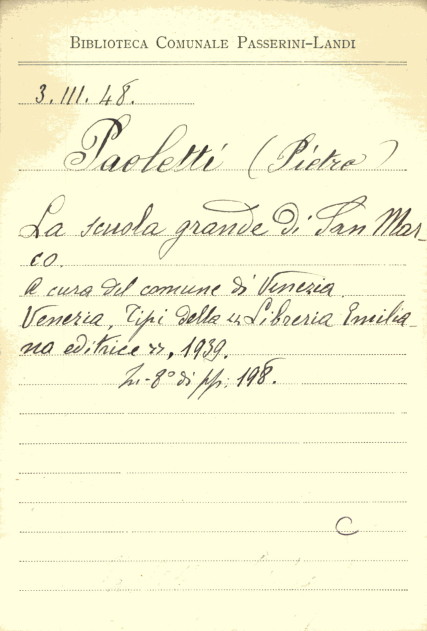 BIBLIOTECA COMUNALE PASSERINI-LANDI
3.III.48.
Paoletti (Pietro)
La scuola grande di San Mar-
co.
A cura del comune di Venezia
Venezia, Tipi della «Libreria Emilia-
na editrice», 1939.
In-8° di pp. 198.
C